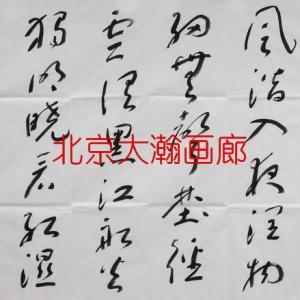 風潛入夜潤物
細無聲埜徑
雲俱黑江船火
獨明曉看紅濕
北京大瀚画廊